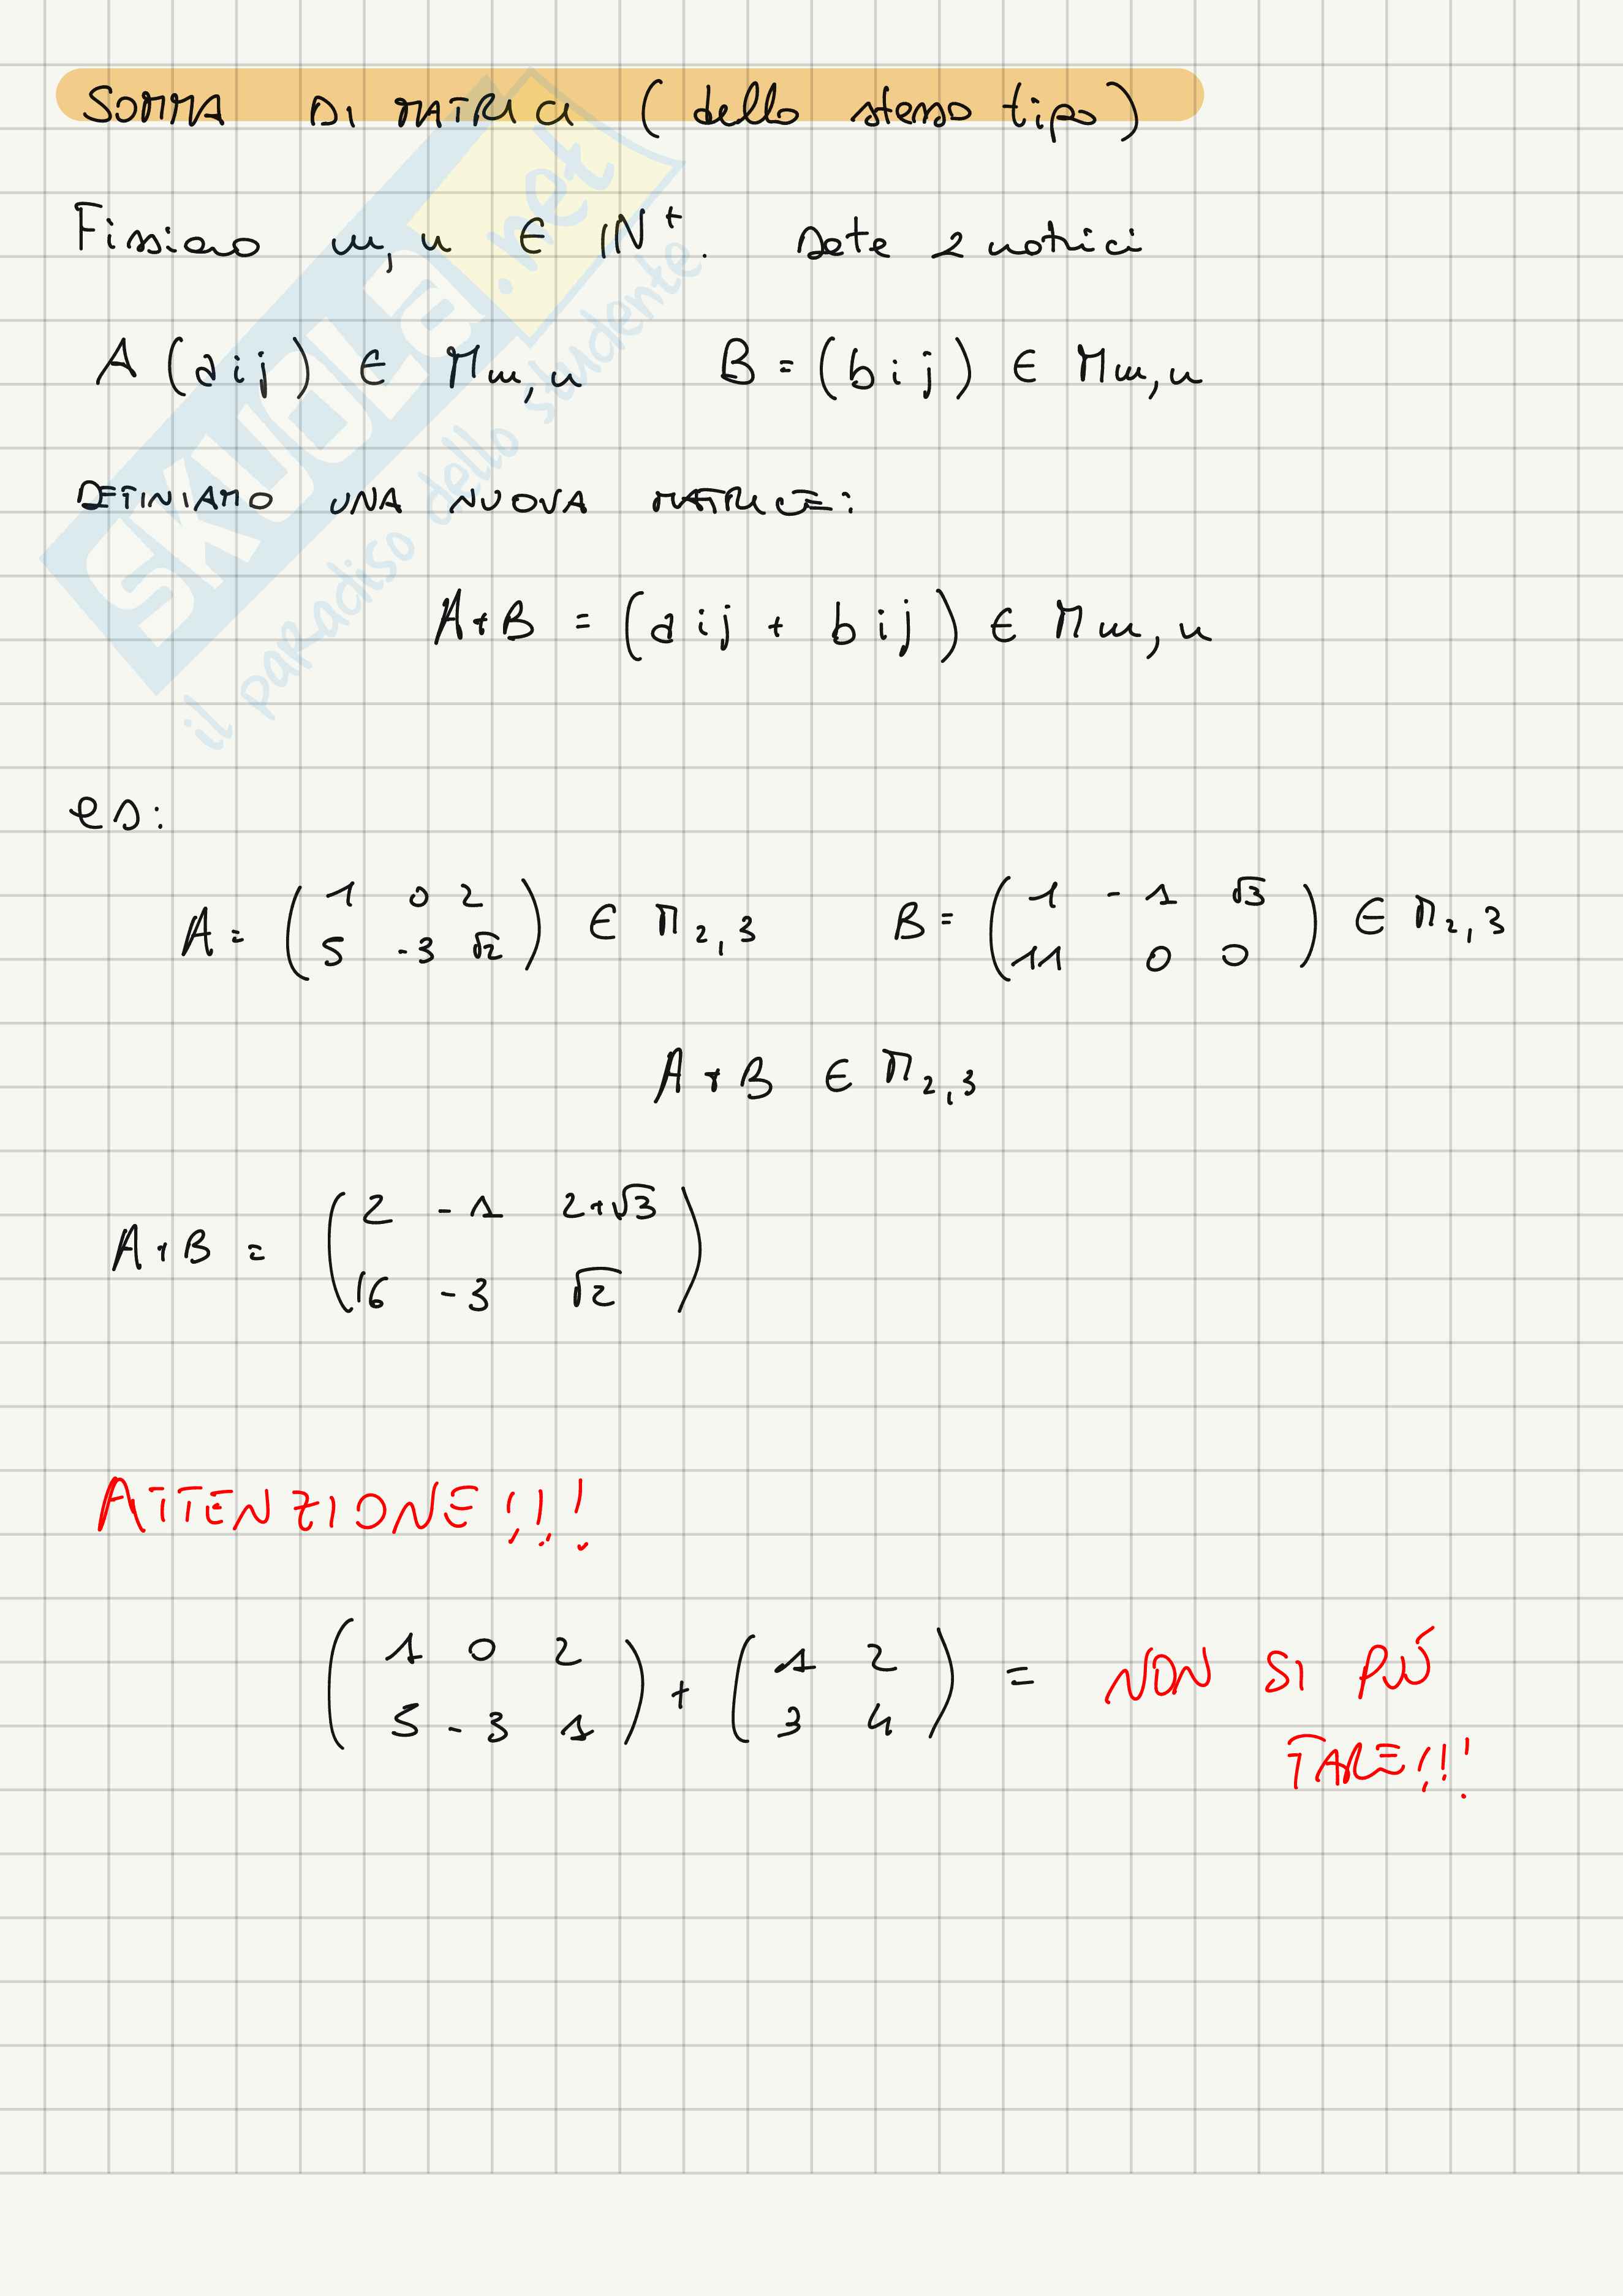 SOMMA DI MATRICI (dello stesso tipo)
Fissiamo m, n ∈ ℕ⁺. Date 2 matrici
A (aij) ∈ Mm,n B = (bij) ∈ Mm,n
DEFINIAMO UNA NUOVA MATRICE:
A+B = (aij + bij) ∈ Mm,n
es:
A = ( 1 0 2 ) ∈ M2,3 B = ( 1 -1 √3 ) ∈ M2,3
( 5 -3 √2 ) ( 11 0 0 )
A+B ∈ M2,3
A+B = ( 2 -1 2+√3 )
( 16 -3 √2 )
ATTENZIONE!!!
( 1 0 2 ) + ( 1 2 ) = NON SI PUÒ
( 5 -3 1 ) ( 3 4 ) FARE!!!
SKUOLa.net
il paradiso dello studente